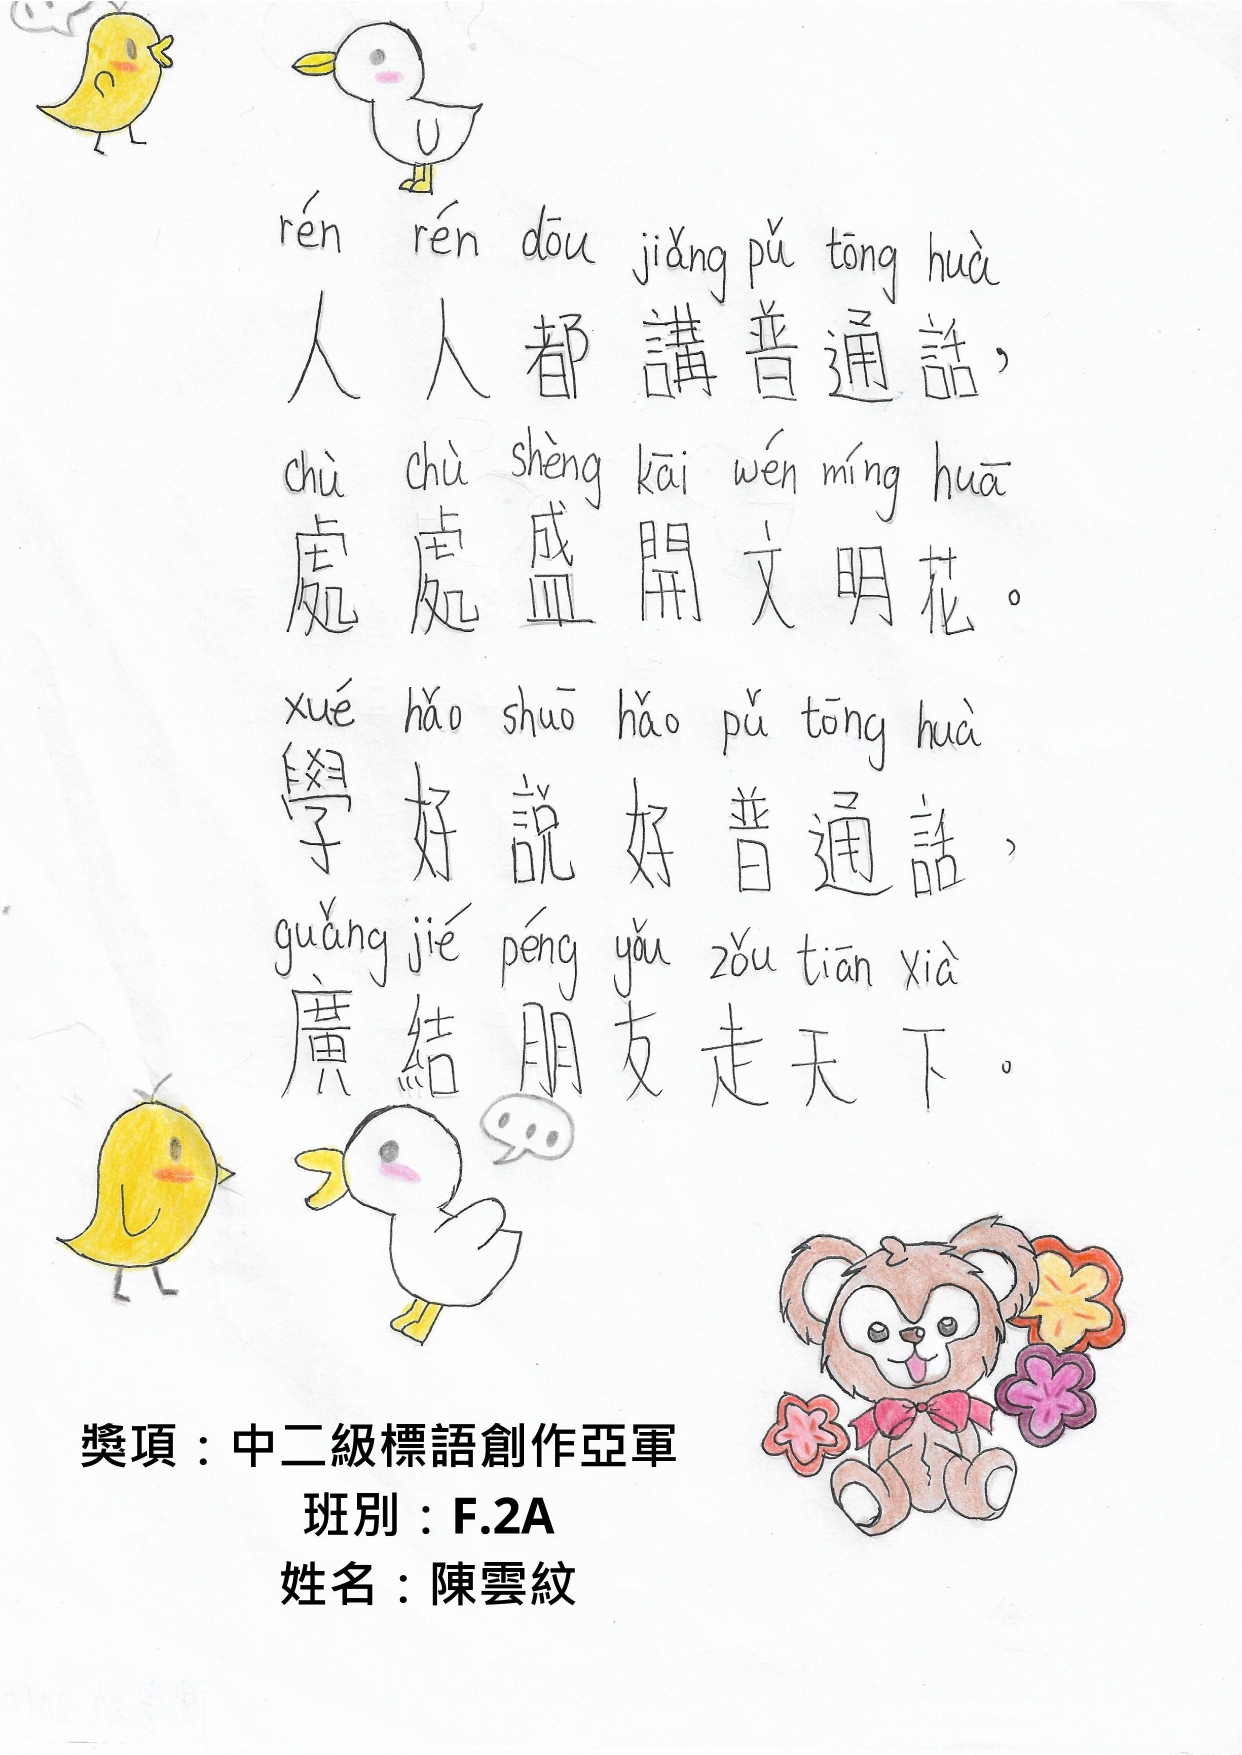 rén rén dōu jiǎng pǔ tōng huà
人人都講普通話，
chù chù shèng kāi wén míng huā
處處盛開文明花。
xué hǎo shuō hǎo pǔ tōng huà
學好說好普通話，
guǎng jié péng yǒu zǒu tiān xià
廣結朋友走天下。
獎項：中二級標語創作亞軍
班別：F.2A
姓名：陳雲紋